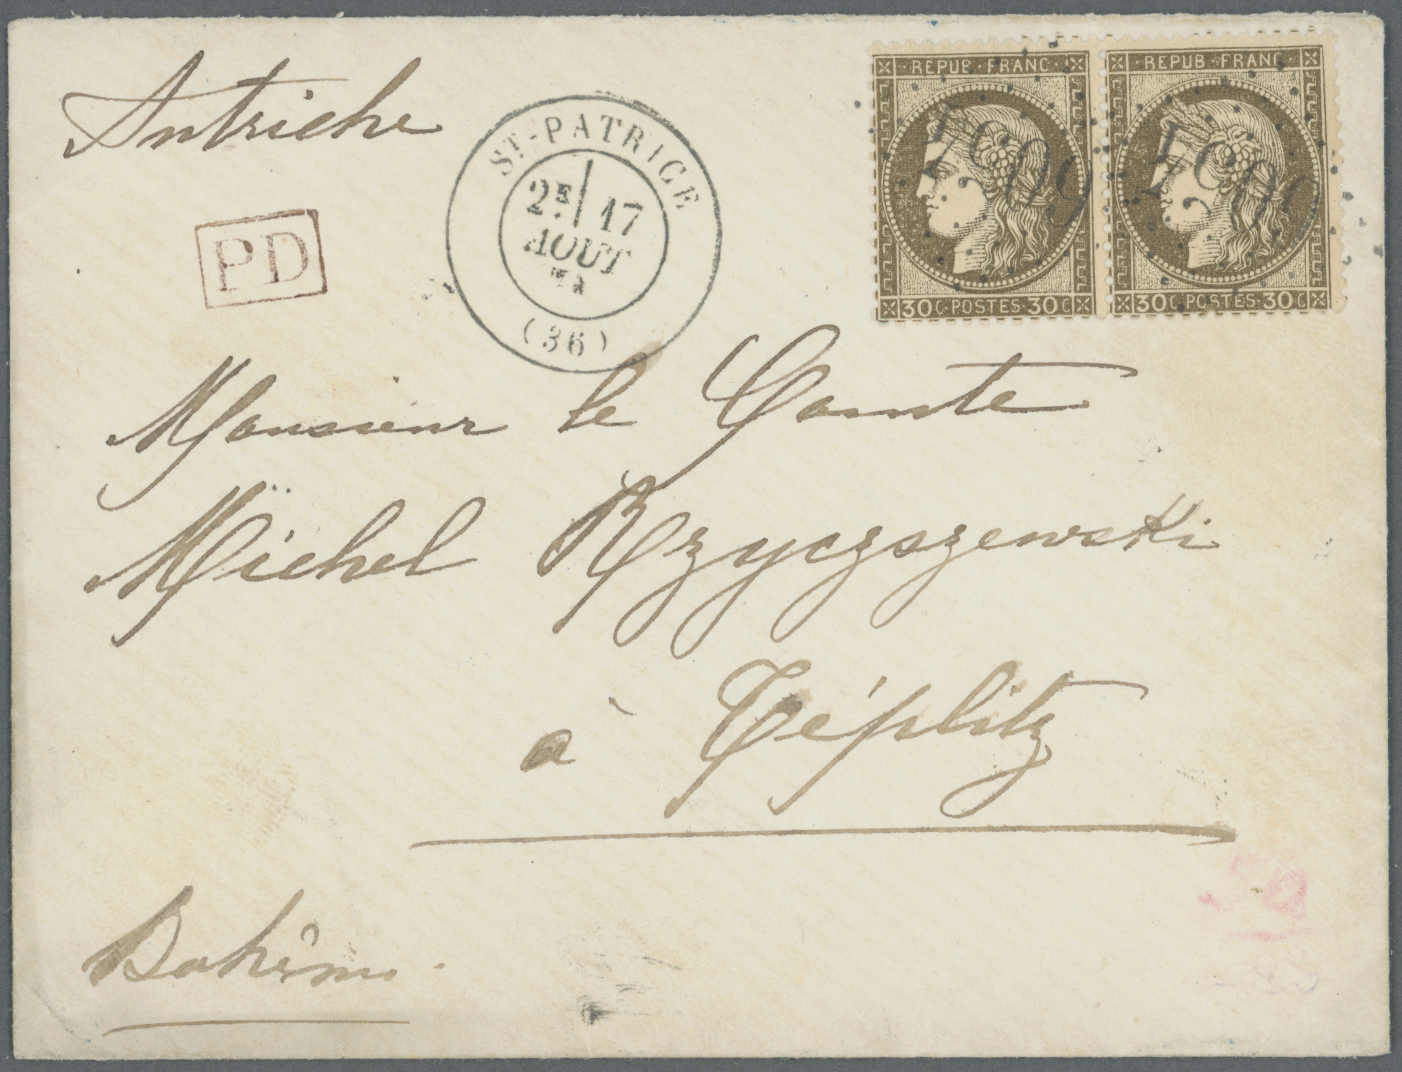 Autriche
ST-PATRICE
2E 17
AOUT
(36)
PD
REPUB·FRANC
30C·POSTES·30C
REPUB·FRANC
30C·POSTES·30C
Monsieur le Comte
Michel Rzyczszewski
à Téplitz
Bohême